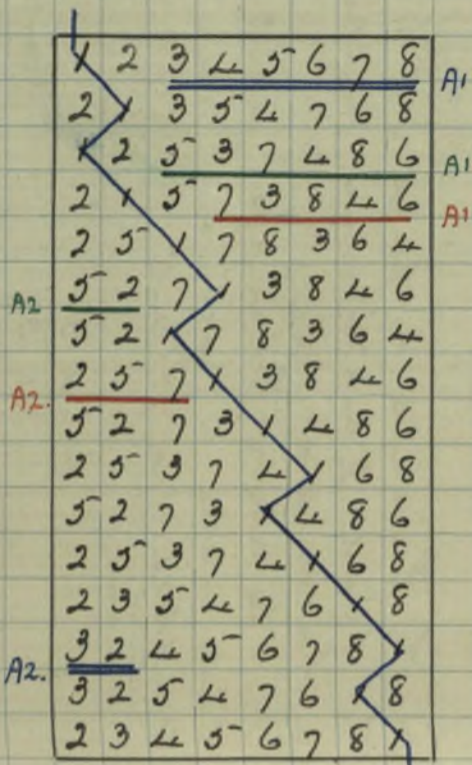 1 2 3 4 5 6 7 8 A1
2 1 3 5 4 7 6 8
1 2 5 3 7 4 8 6 A1
2 1 5 7 3 8 4 6 A1
2 5 1 7 8 3 6 4
A2 5 2 7 1 3 8 4 6
5 2 1 7 8 3 6 4
A2. 2 5 7 1 3 8 4 6
5 2 7 3 1 4 8 6
2 5 3 7 4 1 6 8
5 2 7 3 1 4 8 6
2 5 3 7 4 1 6 8
2 3 5 4 7 6 1 8
A2. 3 2 4 5 6 7 8 1
3 2 5 4 7 6 1 8
2 3 4 5 6 7 8 1